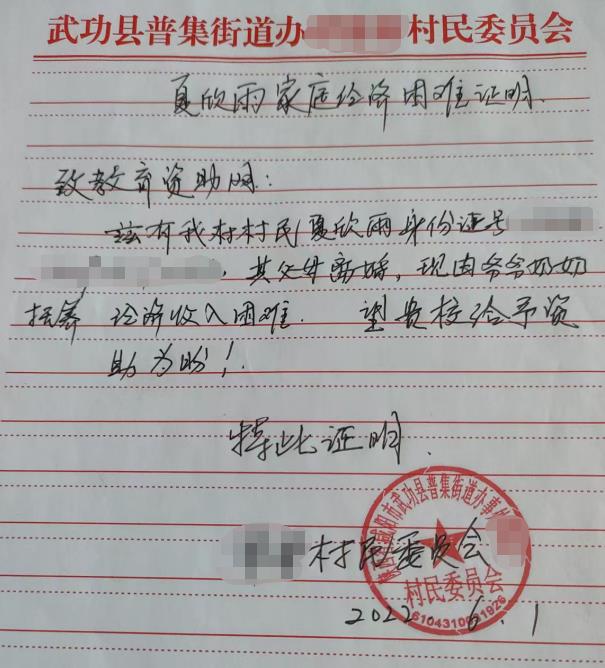 武功县普集街道办 村民委员会
夏欣雨家庭经济困难证明.
致教育资助网:
兹有我村村民夏欣雨身份证号
，其父母离婚，现由爷爷奶奶
抚养 经济收入困难. 望贵校给予资
助为盼！
特此证明.
村民委员会
2022 6.1
咸阳市武功县普集街道办事
村民委员会